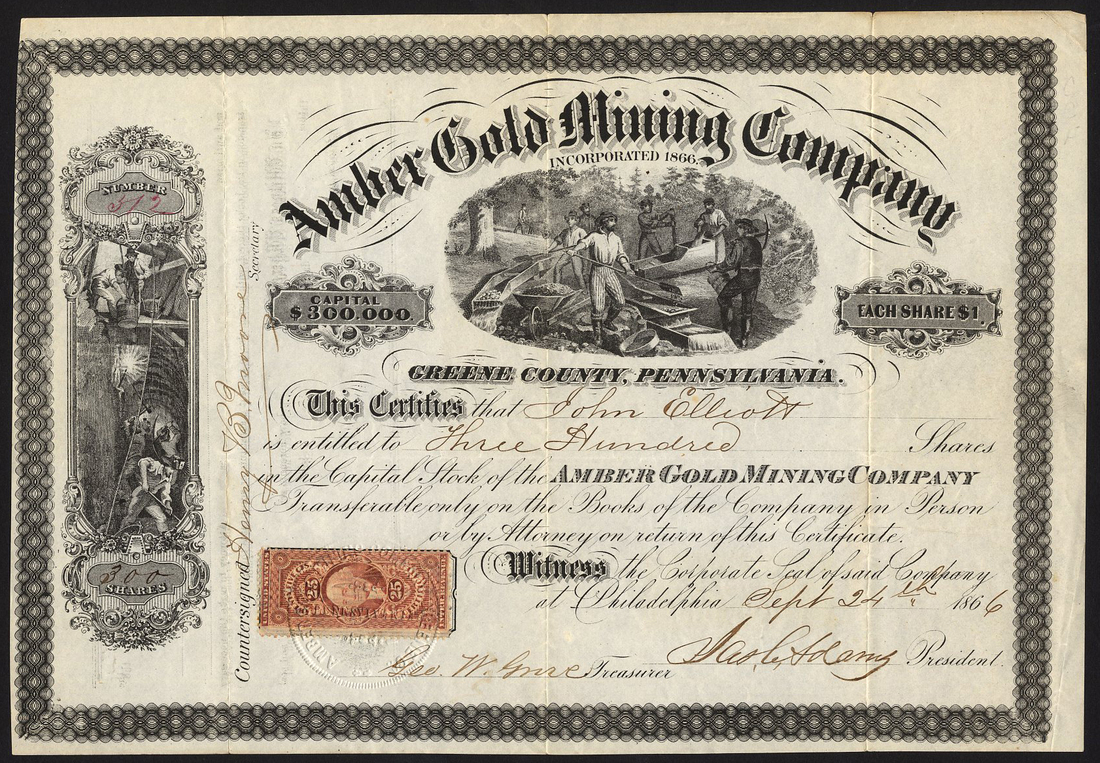 Amber Gold Mining Company
INCORPORATED 1866.
NUMBER
512
CAPITAL
$300.000.
EACH SHARE $1
GREENE COUNTY, PENNSYLVANIA.
This Certifies that John Elliott
is entitled to Three Hundred Shares
in the Capital Stock of the AMBER GOLD MINING COMPANY
Transferable only on the Books of the Company in Person
or by Attorney on return of this Certificate.
Witness the Corporate Seal of said Company
at Philadelphia Sept 24th 1866
300
SHARES
Countersigned Henry B Moore Secretary
25 25
Geo. W. Treasurer
Jas. C. Adams President.